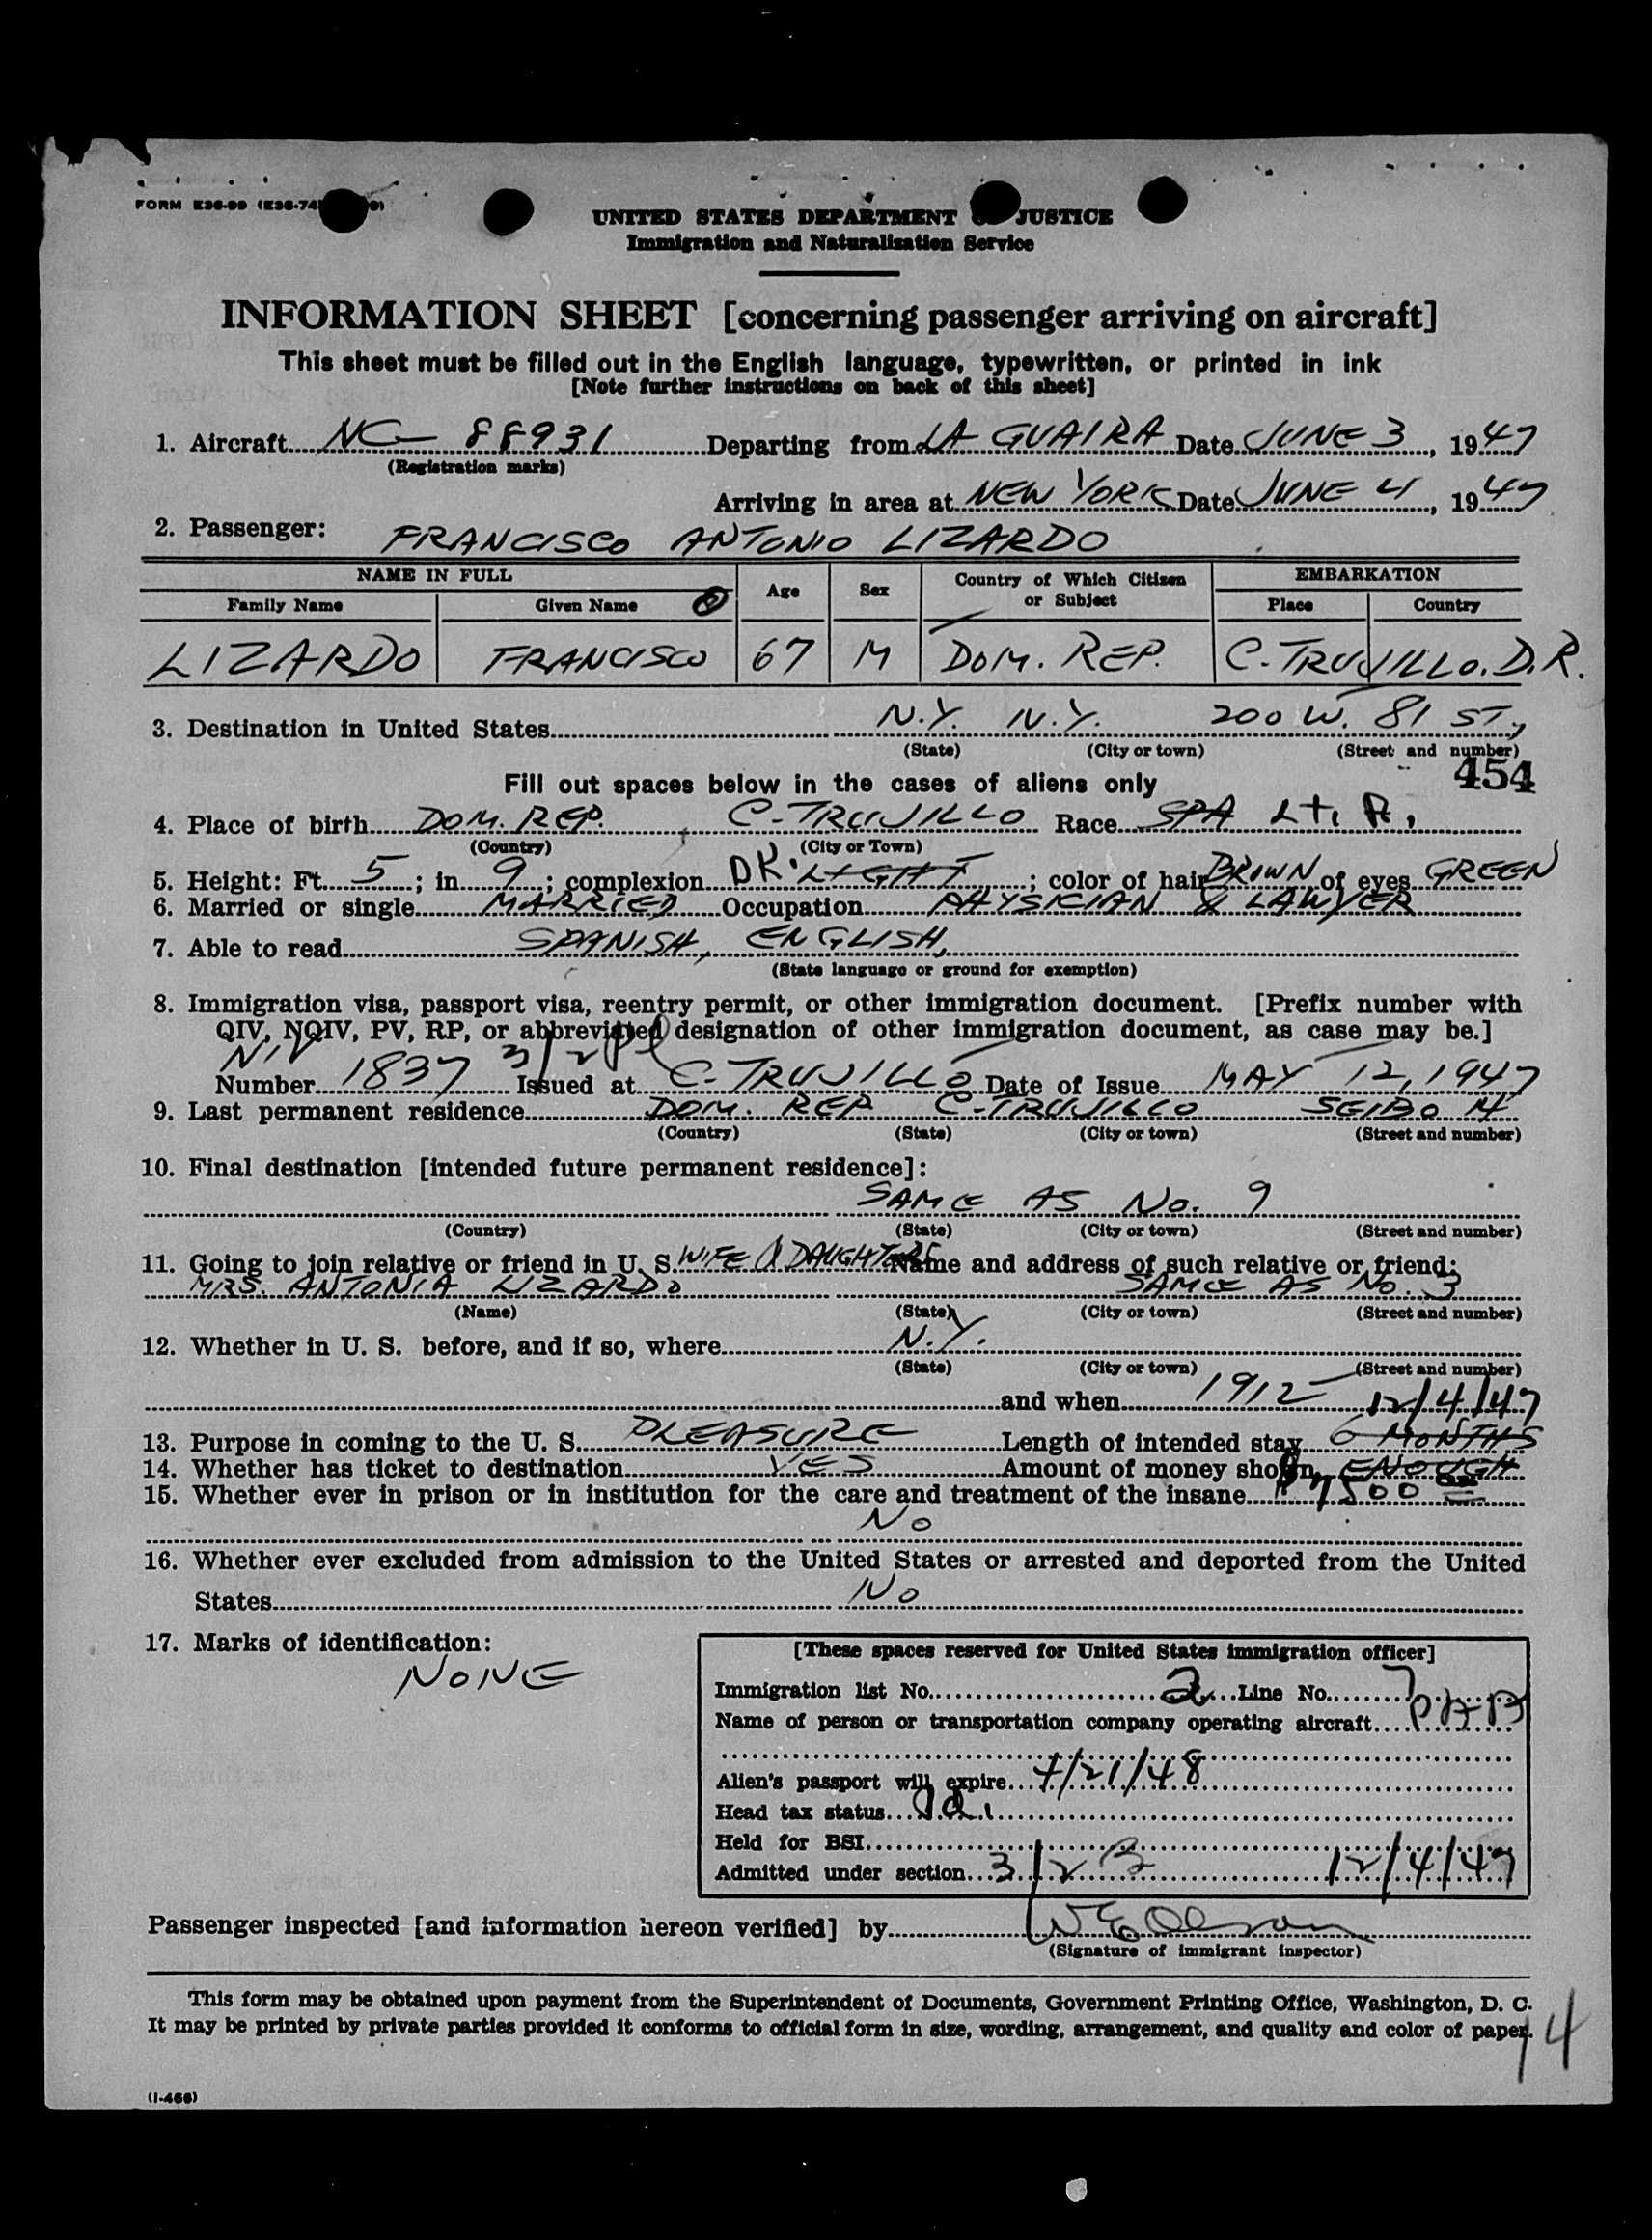 FORM E36-99 (E36-74
UNITED STATES DEPARTMENT JUSTICE
Immigration and Naturalization Service
INFORMATION SHEET [concerning passenger arriving on aircraft]
This sheet must be filled out in the English language, typewritten, or printed in ink
[Note further instructions on back of this sheet]
1. Aircraft NC- 88931 Departing from LA GUAIRA Date JUNE 3, 1947
(Registration marks)
Arriving in area at NEW YORK Date JUNE 4, 1947
2. Passenger: FRANCISCO ANTONIO LIZARDO
NAME IN FULL Age Sex Country of Which Citizen or Subject EMBARKATION
Family Name Given Name Place Country
LIZARDO FRANCISCO 67 M DOM. REP. C. TRUJILLO. D.R.
3. Destination in United States N.Y. N.Y. 200 W. 81 ST,
(State) (City or town) (Street and number)
454
Fill out spaces below in the cases of aliens only
4. Place of birth DOM. REP. C-TRUJILLO Race SPA
(Country) (City or Town)
5. Height: Ft. 5; in 9; complexion DK. LIGHT; color of hair BROWN of eyes GREEN
6. Married or single MARRIED Occupation PHYSICIAN & LAWYER
7. Able to read SPANISH, ENGLISH,
(State language or ground for exemption)
8. Immigration visa, passport visa, reentry permit, or other immigration document. [Prefix number with
QIV, NQIV, PV, RP, or abbreviated designation of other immigration document, as case may be.]
NIV 3/2
Number 1837 Issued at C-TRUJILLO Date of Issue MAY 12, 1947
9. Last permanent residence DOM. REP C-TRUJILLO SEIBO 14
(Country) (State) (City or town) (Street and number)
10. Final destination [intended future permanent residence]:
SAME AS No. 9
(Country) (State) (City or town) (Street and number)
11. Going to join relative or friend in U. S. WIFE & DAUGHTERS Name and address of such relative or friend:
MRS. ANTONIA LIZARDO SAME AS No. 3
(Name) (State) (City or town) (Street and number)
12. Whether in U. S. before, and if so, where N.Y.
(State) (City or town) (Street and number)
and when 1912 12/4/47
13. Purpose in coming to the U. S. PLEASURE Length of intended stay 6 MONTHS
14. Whether has ticket to destination YES Amount of money shown ENOUGH
15. Whether ever in prison or in institution for the care and treatment of the insane
No
16. Whether ever excluded from admission to the United States or arrested and deported from the United
States No
17. Marks of identification:
NONE
[These spaces reserved for United States immigration officer]
Immigration list No. 2 Line No. 7
Name of person or transportation company operating aircraft
Alien's passport will expire 4/21/48
Head tax status
Held for BSI
Admitted under section 3/2 B 12/4/47
Passenger inspected [and information hereon verified] by W E Olson
(Signature of immigrant inspector)
This form may be obtained upon payment from the Superintendent of Documents, Government Printing Office, Washington, D. C.
It may be printed by private parties provided it conforms to official form in size, wording, arrangement, and quality and color of paper.
14
(I-466)